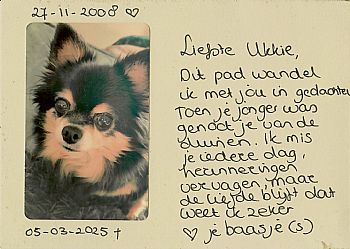 27-11-2008 ♡
Liefste Ukkie,
Dit pad wandel
ik met jou in gedachten
Toen je jonger was
genoot je van de
duinen. Ik mis
je iedere dag,
herinneringen
vervagen, maar
de liefde blijft dat
weet ik zeker
♡ je baasje(s)
05-03-2025 †